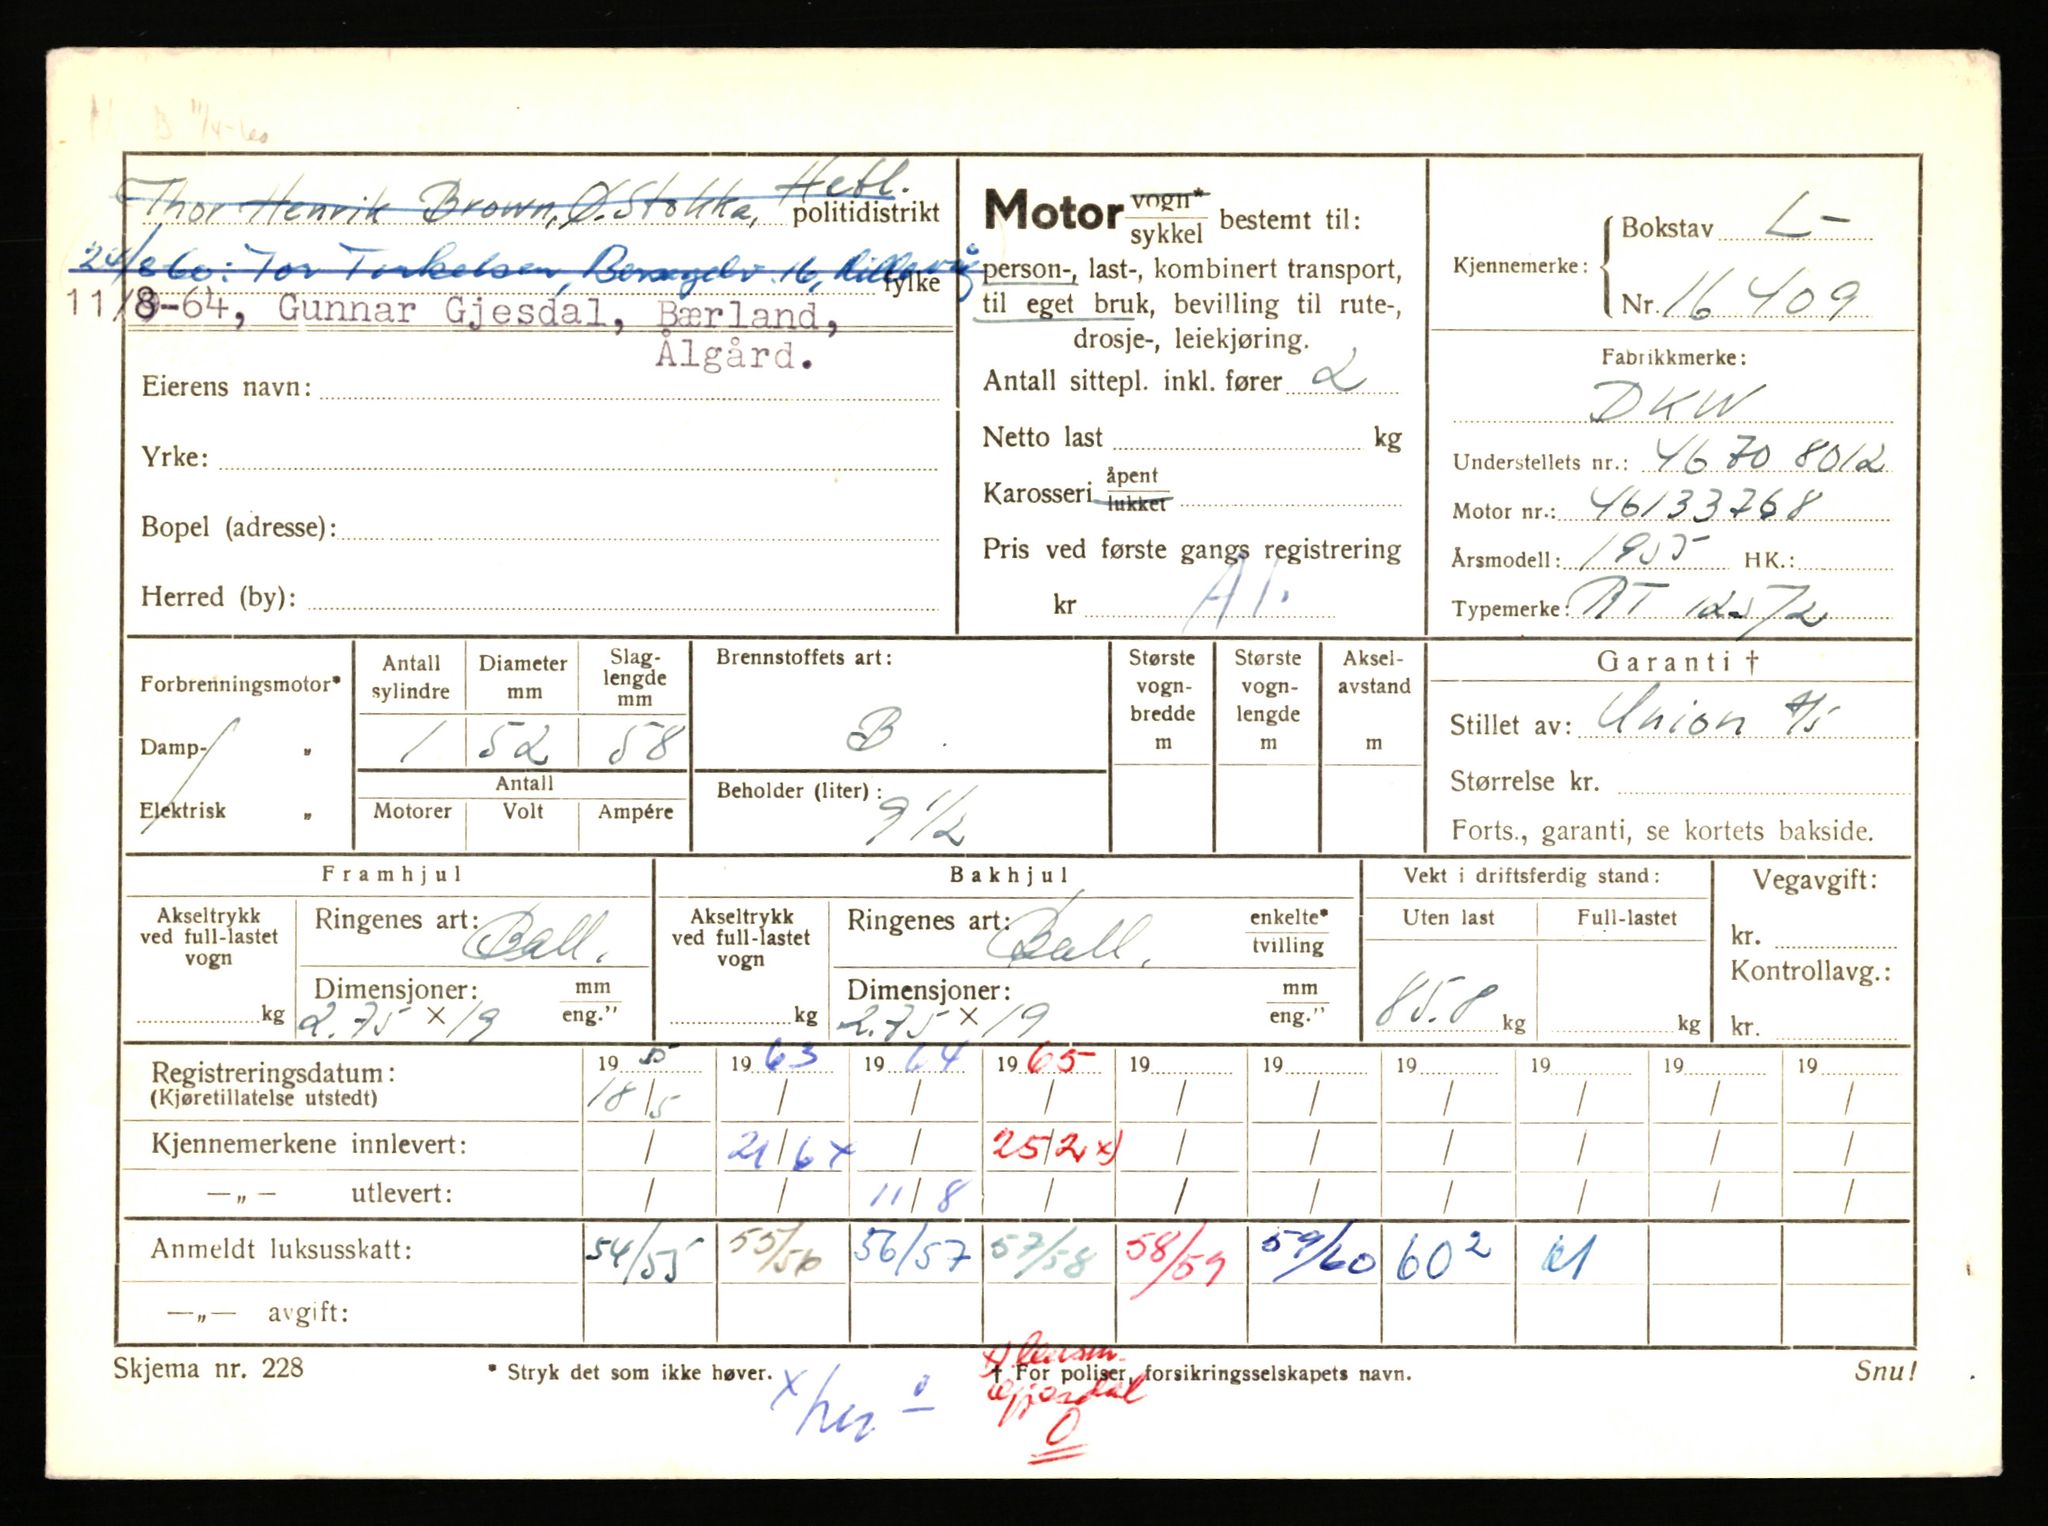 Thor Henrik Brown, Ø. Stokka, Hetl. politidistrikt
24/8 60: Tor Torkelsen, 16, Hillevåg fylke
11/8-64, Gunnar Gjesdal, Bærland,
Ålgård.
Eierens navn:
Yrke:
Bopel (adresse):
Herred (by):
Motor vogn* / sykkel bestemt til:
person-, last-, kombinert transport,
til eget bruk, bevilling til rute-,
drosje-, leiekjøring.
Antall sittepl. inkl. fører 2
Netto last kg
Karosseri åpent / lukket
Pris ved første gangs registrering
kr A1.
Kjennemerke:
Bokstav L-
Nr. 16409
Fabrikkmerke:
DKW
Understellets nr.: 46 70 8012
Motor nr.: 46133768
Årsmodell: 1955 HK.:
Typemerke: RT 125/2
Forbrenningsmotor*
Damp- "
Elektrisk "
Antall sylindre
Diameter mm
Slag-lengde mm
1 52 58
Antall
Motorer Volt Ampére
Brennstoffets art:
B
Beholder (liter):
9 1/2
Største vogn-bredde m
Største vogn-lengde m
Aksel-avstand m
Garanti †
Stillet av: Union A/S
Størrelse kr.
Forts., garanti, se kortets bakside.
Framhjul
Akseltrykk ved full-lastet vogn
kg
Ringenes art: Ball.
Dimensjoner: mm / eng."
2.75 x 19
Bakhjul
Akseltrykk ved full-lastet vogn
kg
Ringenes art: Ball. enkelte* / tvilling
Dimensjoner: mm / eng."
2.75 x 19
Vekt i driftsferdig stand:
Uten last Full-lastet
85.8 kg kg
Vegavgift:
kr.
Kontrollavg.:
kr.
Registreringsdatum: 19 55 19 63 19 64 19 65 19 19 19 19 19 19
(Kjøretillatelse utstedt) 18/5 / / / / / / / / /
Kjennemerkene innlevert: / 21/6 x / 25/2 x) / / / / / /
—„— utlevert: / / 11/8 / / / / / / /
Anmeldt luksusskatt: 54/55 55/56 56/57 57/58 58/59 59/60 60² 61
—„— avgift:
Skjema nr. 228
* Stryk det som ikke høver.
† For poliser, forsikringsselskapets navn.
Snu!
x her 0
x)
Gjesdal
0